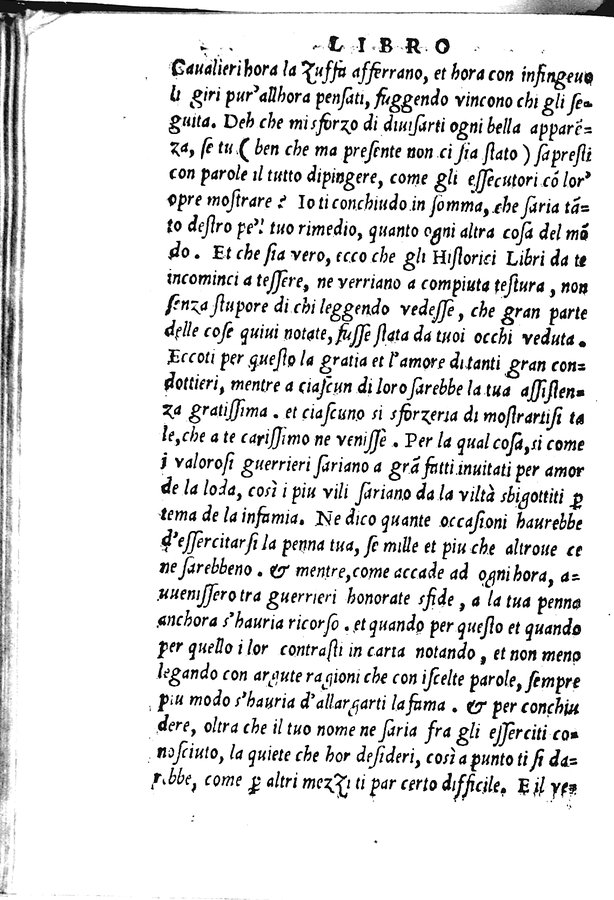 LIBRO
Caualieri hora la zuffa afferrano, et hora con infingeuo
li giri pur' allhora pensati, fuggendo vincono chi gli se-
guita. Deh che mi sforzo di diuisarti ogni bella apparē-
za, se tu ( ben che ma presente non ci sia stato ) sapresti
con parole il tutto dipingere, come gli essecutori cō lor'
opre mostrare? Io ti conchiudo in somma, che saria tā-
to destro pe'l tuo rimedio, quanto ogni altra cosa del mō
do. Et che sia vero, ecco che gli Historici Libri da te
incominci a tessere, ne verriano a compiuta testura, non
senza stupore di chi leggendo vedesse, che gran parte
delle cose quiui notate, fusse stata da tuoi occhi veduta.
Eccoti per questo la gratia et l'amore di tanti gran con-
dottieri, mentre a ciascun di loro sarebbe la tua assisten-
za gratissima. et ciascuno si sforzeria di mostrartisi ta
le, che a te carissimo ne venisse. Per la qual cosa, si come
i valorosi guerrieri sariano a grā fatti inuitati per amor
de la loda, così i piu vili sariano da la viltà sbigottiti ꝑ
tema de la infamia. Ne dico quante occasioni haurebbe
d'essercitarsi la penna tua, se mille et piu che altroue ce
ne sarebbeno. & mentre, come accade ad ogni hora, a-
uuenissero tra guerrieri honorate sfide, a la tua penna
anchora s'hauria ricorso. et quando per questo et quando
per quello i lor contrasti in carta notando, et non meno
legando con argute ragioni che con iscelte parole, sempre
piu modo s'hauria d'allargarti la fama. & per conchiu
dere, oltra che il tuo nome ne saria fra gli esserciti co-
nosciuto, la quiete che hor desideri, così a punto ti si da-
rebbe, come ꝑ altri mezzi ti par certo difficile. E il ve-